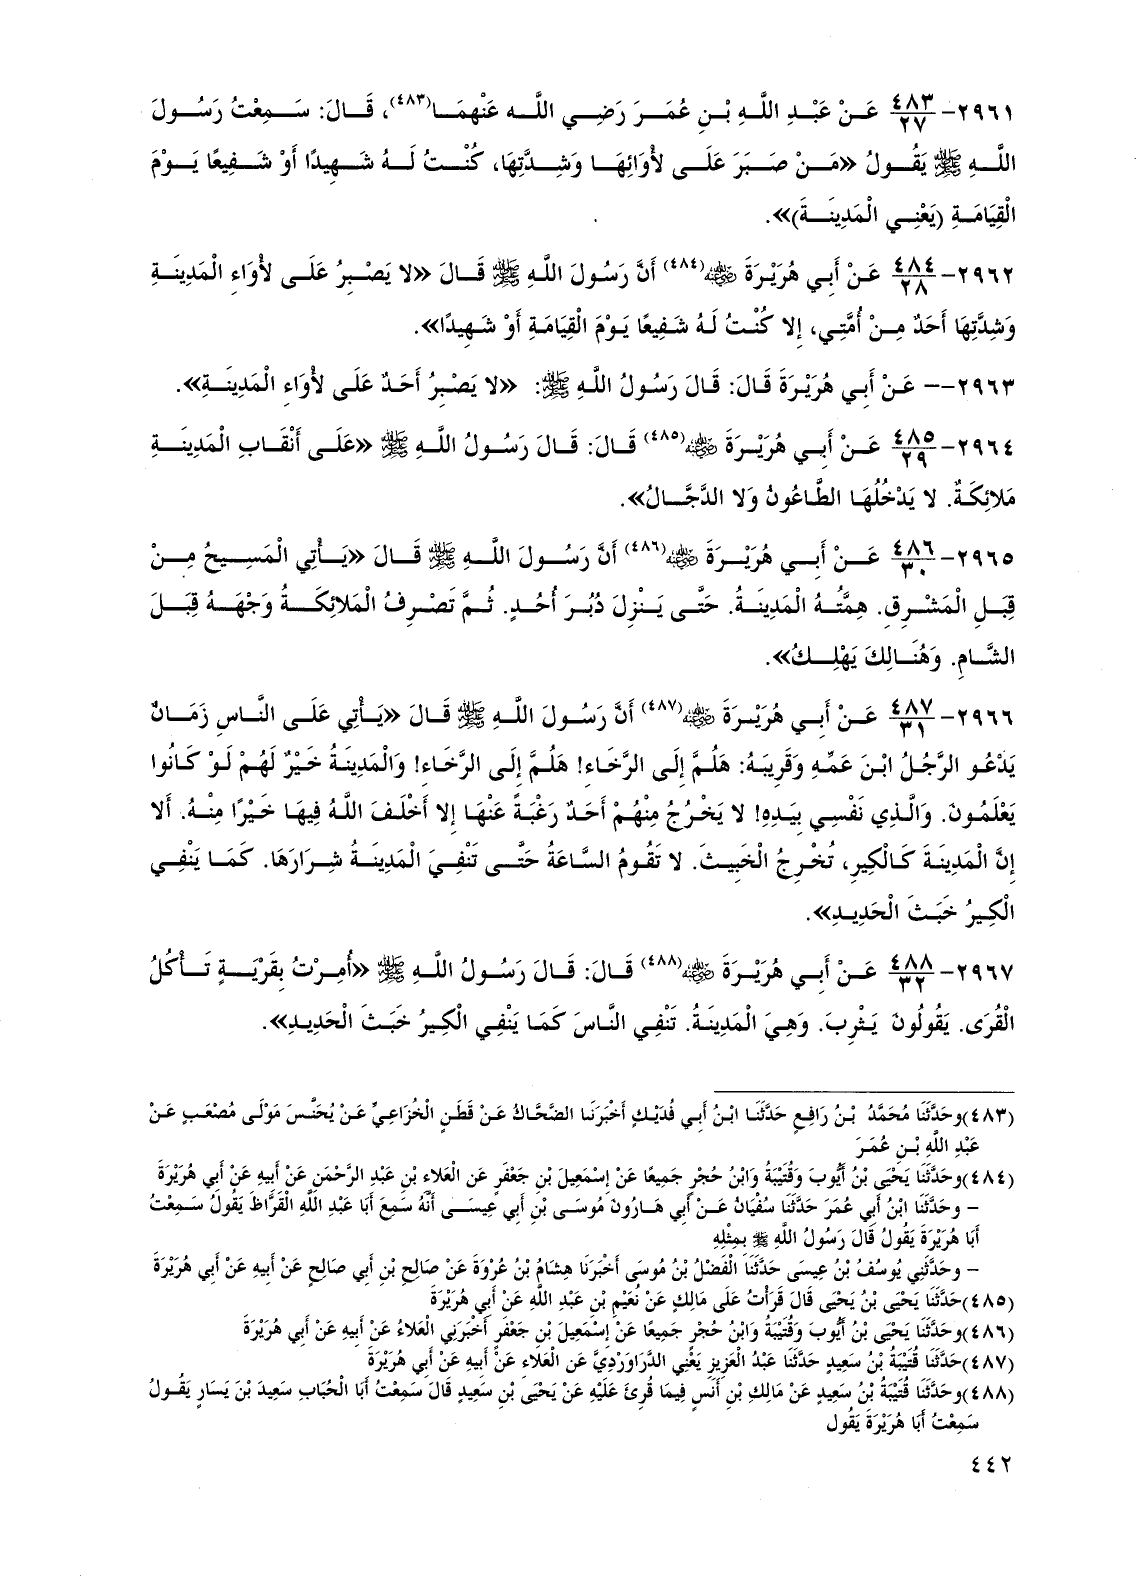 ٢٩٦١- ٤٨٣/٢٧ عَنْ عَبْدِ اللَّهِ بْنِ عُمَرَ رَضِي اللَّه عَنْهمَا(٤٨٣)، قَالَ: سَمِعْتُ رَسُولَ
اللَّهِ ﷺ يَقُولُ «مَنْ صَبَرَ عَلَى لأْوَائِهَا وَشِدَّتِهَا، كُنْتُ لَهُ شَهِيدًا أَوْ شَفِيعًا يَوْمَ
الْقِيَامَةِ (يَعْنِي الْمَدِينَةَ)».
٢٩٦٢- ٤٨٤/٢٨ عَنْ أَبِي هُرَيْرَةَ ﵁(٤٨٤) أَنَّ رَسُولَ اللَّهِ ﷺ قَالَ «لا يَصْبِرُ عَلَى لأْوَاءِ الْمَدِينَةِ
وَشِدَّتِهَا أَحَدٌ مِنْ أُمَّتِي، إِلا كُنْتُ لَهُ شَفِيعًا يَوْمَ الْقِيَامَةِ أَوْ شَهِيدًا».
٢٩٦٣-- عَنْ أَبِي هُرَيْرَةَ قَالَ: قَالَ رَسُولُ اللَّهِ ﷺ: «لا يَصْبِرُ أَحَدٌ عَلَى لأْوَاءِ الْمَدِينَةِ».
٢٩٦٤- ٤٨٥/٢٩ عَنْ أَبِي هُرَيْرَةَ ﵁(٤٨٥) قَالَ: قَالَ رَسُولُ اللَّهِ ﷺ «عَلَى أَنْقَابِ الْمَدِينَةِ
مَلائِكَةٌ. لا يَدْخُلُهَا الطَّاعُونُ وَلا الدَّجَّالُ».
٢٩٦٥- ٤٨٦/٣٠ عَنْ أَبِي هُرَيْرَةَ ﵁(٤٨٦) أَنَّ رَسُولَ اللَّهِ ﷺ قَالَ «يَأْتِي الْمَسِيحُ مِنْ
قِبَلِ الْمَشْرِقِ. هِمَّتُهُ الْمَدِينَةُ. حَتَّى يَنْزِلَ دُبُرَ أُحُدٍ. ثُمَّ تَصْرِفُ الْمَلائِكَةُ وَجْهَهُ قِبَلَ
الشَّامِ. وَهُنَالِكَ يَهْلِكُ».
٢٩٦٦- ٤٨٧/٣١ عَنْ أَبِي هُرَيْرَةَ ﵁(٤٨٧) أَنَّ رَسُولَ اللَّهِ ﷺ قَالَ «يَأْتِي عَلَى النَّاسِ زَمَانٌ
يَدْعُو الرَّجُلُ ابْنَ عَمِّهِ وَقَرِيبَهُ: هَلُمَّ إِلَى الرَّخَاءِ! هَلُمَّ إِلَى الرَّخَاءِ! وَالْمَدِينَةُ خَيْرٌ لَهُمْ لَوْ كَانُوا
يَعْلَمُونَ. وَالَّذِي نَفْسِي بِيَدِهِ! لا يَخْرُجُ مِنْهُمْ أَحَدٌ رَغْبَةً عَنْهَا إِلا أَخْلَفَ اللَّهُ فِيهَا خَيْرًا مِنْهُ. أَلا
إِنَّ الْمَدِينَةَ كَالْكِيرِ، تُخْرِجُ الْخَبِيثَ. لا تَقُومُ السَّاعَةُ حَتَّى تَنْفِيَ الْمَدِينَةُ شِرَارَهَا. كَمَا يَنْفِي
الْكِيرُ خَبَثَ الْحَدِيدِ».
٢٩٦٧- ٤٨٨/٣٢ عَنْ أَبِي هُرَيْرَةَ ﵁(٤٨٨) قَالَ: قَالَ رَسُولُ اللَّهِ ﷺ «أُمِرْتُ بِقَرْيَةٍ تَأْكُلُ
الْقُرَى. يَقُولُونَ يَثْرِبَ. وَهِيَ الْمَدِينَةُ. تَنْفِي النَّاسَ كَمَا يَنْفِي الْكِيرُ خَبَثَ الْحَدِيدِ».
(٤٨٣)وحَدَّثَنَا مُحَمَّدُ بْنُ رَافِعٍ حَدَّثَنَا ابْنُ أَبِي فُدَيْكٍ أَخْبَرَنَا الضَّحَّاكُ عَنْ قَطَنٍ الْخُزَاعِيِّ عَنْ يُحَنَّسَ مَوْلَى مُصْعَبٍ عَنْ
عَبْدِ اللَّهِ بْنِ عُمَرَ
(٤٨٤)وحَدَّثَنَا يَحْيَى بْنُ أَيُّوبَ وَقُتَيْبَةُ وَابْنُ حُجْرٍ جَمِيعًا عَنْ إِسْمَعِيلَ بْنِ جَعْفَرٍ عَنِ الْعَلاءِ بْنِ عَبْدِ الرَّحْمَنِ عَنْ أَبِيهِ عَنْ أَبِي هُرَيْرَةَ
- وحَدَّثَنَا ابْنُ أَبِي عُمَرَ حَدَّثَنَا سُفْيَانُ عَنْ أَبِي هَارُونَ مُوسَى بْنِ أَبِي عِيسَى أَنَّهُ سَمِعَ أَبَا عَبْدِ اللَّهِ الْقَرَّاظَ يَقُولُ سَمِعْتُ
أَبَا هُرَيْرَةَ يَقُولُ قَالَ رَسُولُ اللَّهِ ﷺ بِمِثْلِهِ
- وحَدَّثَنِي يُوسُفُ بْنُ عِيسَى حَدَّثَنَا الْفَضْلُ بْنُ مُوسَى أَخْبَرَنَا هِشَامُ بْنُ عُرْوَةَ عَنْ صَالِحِ بْنِ أَبِي صَالِحٍ عَنْ أَبِيهِ عَنْ أَبِي هُرَيْرَةَ
(٤٨٥)حَدَّثَنَا يَحْيَى بْنُ يَحْيَى قَالَ قَرَأْتُ عَلَى مَالِكٍ عَنْ نُعَيْمِ بْنِ عَبْدِ اللَّهِ عَنْ أَبِي هُرَيْرَةَ
(٤٨٦)وحَدَّثَنَا يَحْيَى بْنُ أَيُّوبَ وَقُتَيْبَةُ وَابْنُ حُجْرٍ جَمِيعًا عَنْ إِسْمَعِيلَ بْنِ جَعْفَرٍ أَخْبَرَنِي الْعَلاءُ عَنْ أَبِيهِ عَنْ أَبِي هُرَيْرَةَ
(٤٨٧)حَدَّثَنَا قُتَيْبَةُ بْنُ سَعِيدٍ حَدَّثَنَا عَبْدُ الْعَزِيزِ يَعْنِي الدَّرَاوَرْدِيَّ عَنِ الْعَلاءِ عَنْ أَبِيهِ عَنْ أَبِي هُرَيْرَةَ
(٤٨٨)وحَدَّثَنَا قُتَيْبَةُ بْنُ سَعِيدٍ عَنْ مَالِكِ بْنِ أَنَسٍ فِيمَا قُرِئَ عَلَيْهِ عَنْ يَحْيَى بْنِ سَعِيدٍ قَالَ سَمِعْتُ أَبَا الْحُبَابِ سَعِيدَ بْنَ يَسَارٍ يَقُولُ
سَمِعْتُ أَبَا هُرَيْرَةَ يَقُولُ
٤٤٢